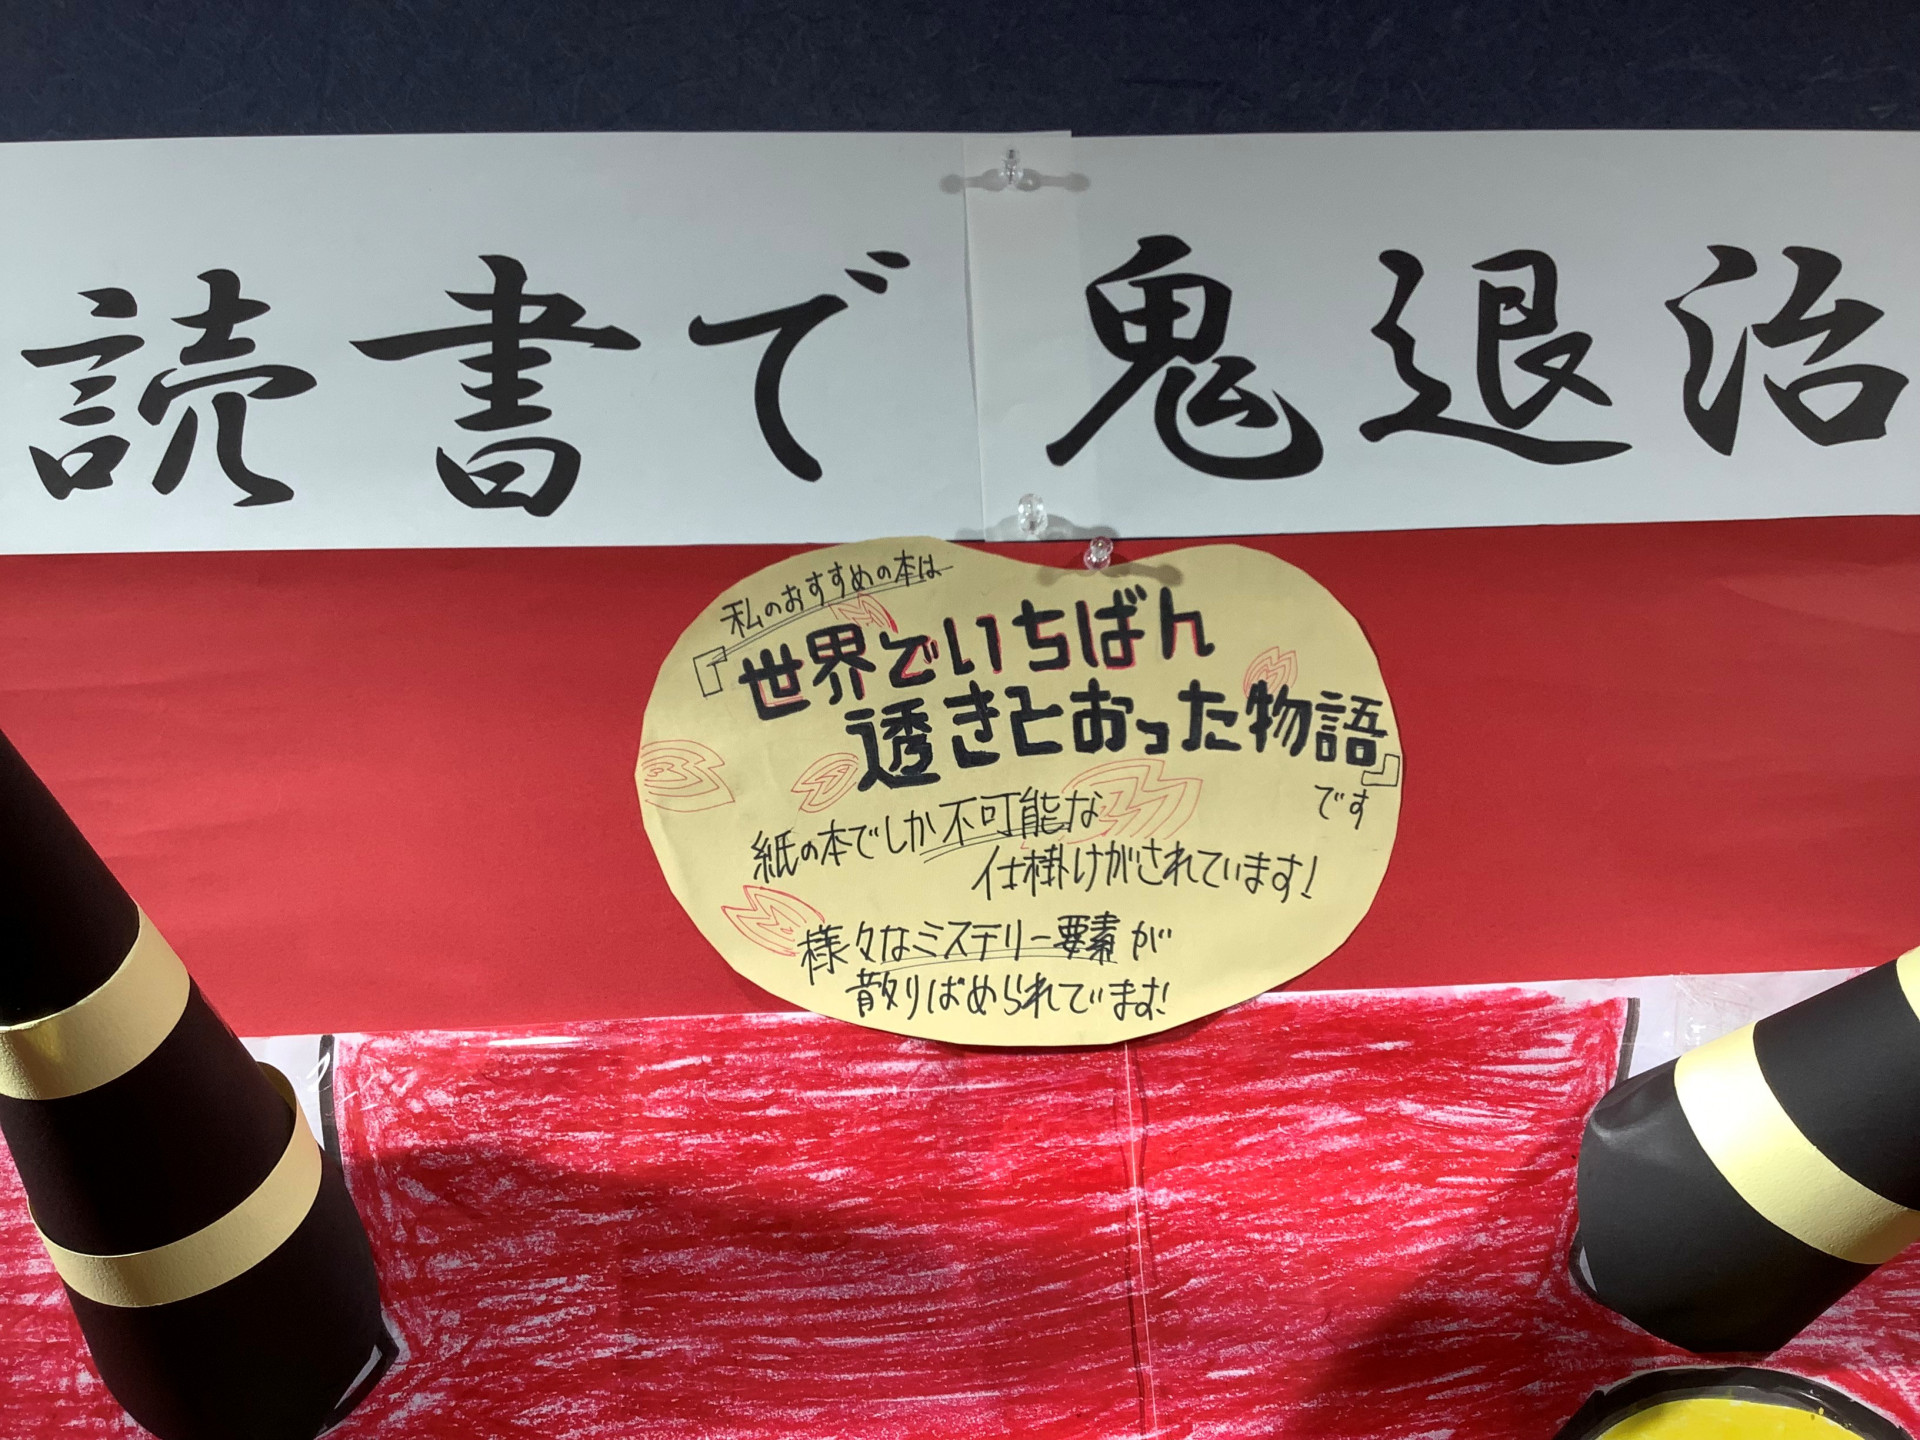 読書で鬼退治
私のおすすめの本は
『世界でいちばん
透きとおった物語』
です
紙の本でしか不可能な
仕掛けがされています!
様々なミステリー要素が
散りばめられています!